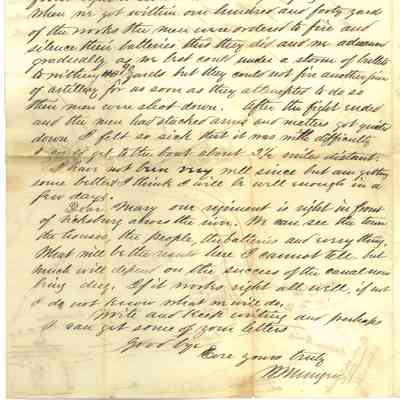 When we got within one hundred and forty yards
of the works the men were ordered to fire and
silence their batteries, this they did and we advanced
gradually as we best could under a storm of bullets
to within yards but they could not fire another piece
of artillery for as soon as they attempted to do so
their men were shot down. After the fight ended
and the men had stacked arms and matters got quiet
down I felt so sick that it was with difficulty
I could get to the boat about 2½ miles distant.
I have not been very well since but am getting
some better I think I will be well enough in a
few days.
Dear Mary our regiment is right in front
of Vicksburg across the river. We can see the town
the houses, the people, the batteries and every thing.
What will be the result here I cannot tell but
much will depend on the success of the canal now
being dug. If it works right all well, if not
I do not know what we will do.
Write and keep writing and perhaps
I can get some of your letters
Good bye
Ever yours truly